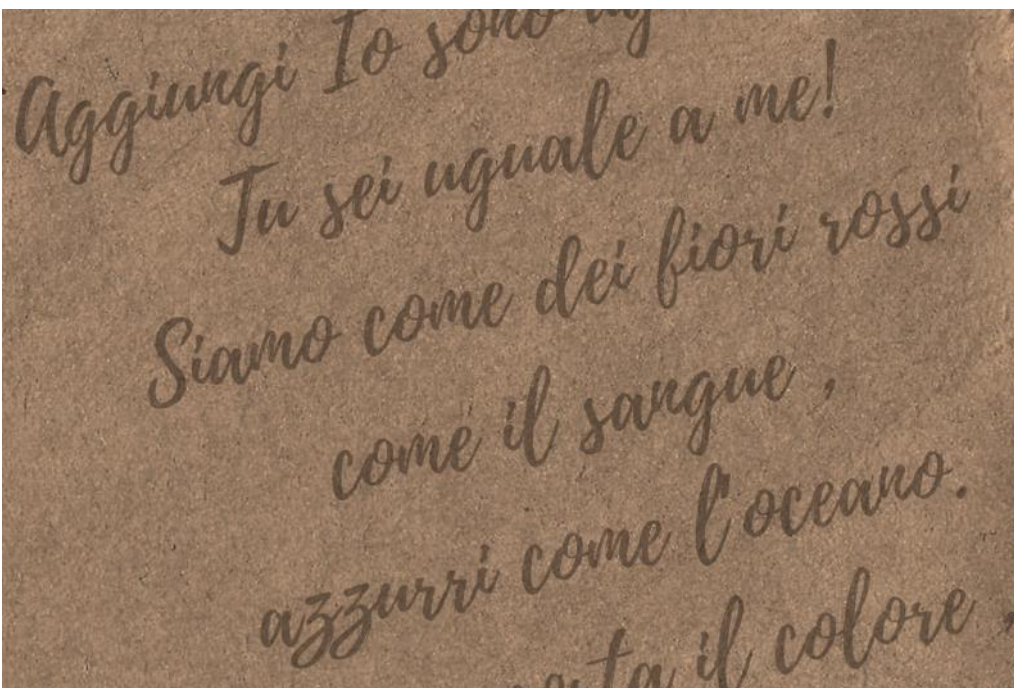 Aggiungi Io sono
Tu sei uguale a me!
Siamo come dei fiori rossi
come il sangue ,
azzurri come l'oceano.
il colore ,